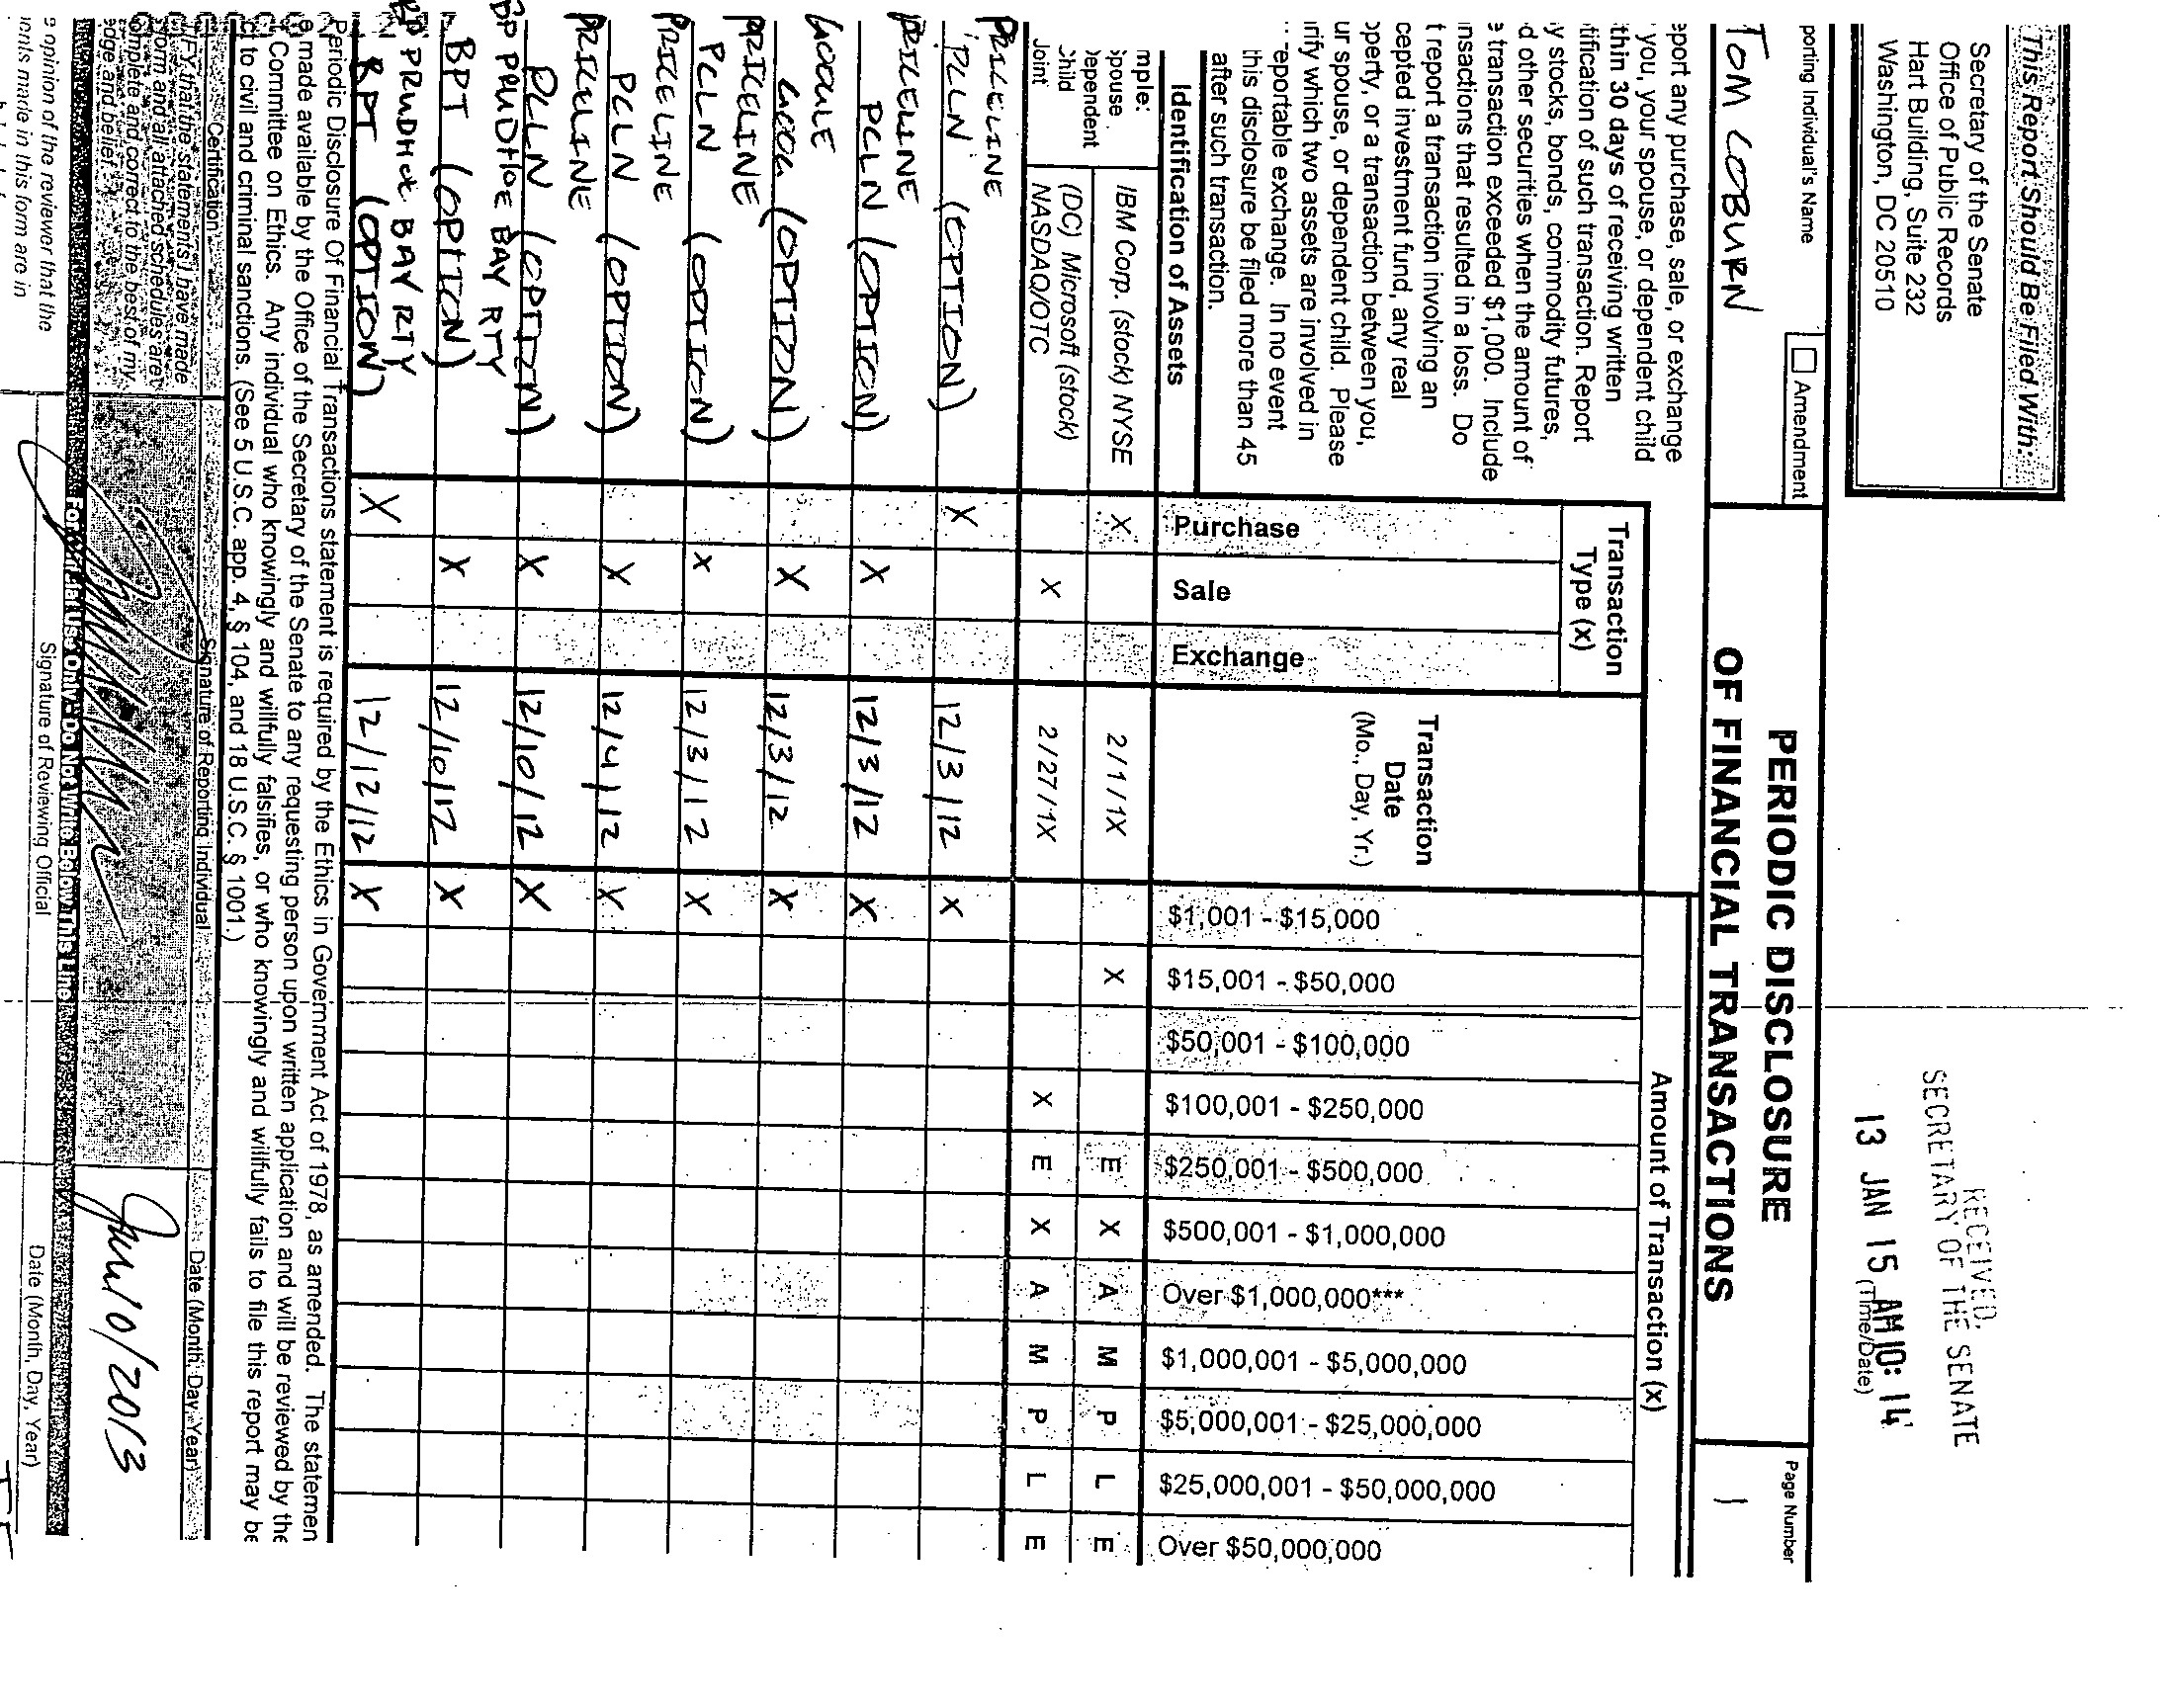 This Report Should Be Filed With:
Secretary of the Senate
Office of Public Records
Hart Building, Suite 232
Washington, DC 20510
RECEIVED
SECRETARY OF THE SENATE
13 JAN 15 AM 10: 14
(Time/Date)
porting Individual's Name
Amendment
TOM COBURN
PERIODIC DISCLOSURE
OF FINANCIAL TRANSACTIONS
Page Number
1
eport any purchase, sale, or exchange
you, your spouse, or dependent child
thin 30 days of receiving written
tification of such transaction. Report
y stocks, bonds, commodity futures,
d other securities when the amount of
e transaction exceeded $1,000. Include
nsactions that resulted in a loss. Do
t report a transaction involving an
cepted investment fund, any real
operty, or a transaction between you,
ur spouse, or dependent child. Please
rify which two assets are involved in
reportable exchange. In no event
this disclosure be filed more than 45
after such transaction.
Transaction
Type (x)
Transaction
Date
(Mo., Day, Yr.)
Amount of Transaction (x)
Identification of Assets
Purchase
Sale
Exchange
$1,001 - $15,000
$15,001 - $50,000
$50,001 - $100,000
$100,001 - $250,000
$250,001 - $500,000
$500,001 - $1,000,000
Over $1,000,000***
$1,000,001 - $5,000,000
$5,000,001 - $25,000,000
$25,000,001 - $50,000,000
Over $50,000,000
mple:
Spouse
Dependent
Child
Joint
IBM Corp. (stock) NYSE X 2/1/1X X E X A M P L E
(DC) Microsoft (stock)
NASDAQ/OTC X 2/27/1X X E X A M P L E
PRICELINE
PCLN (OPTION) X 12/3/12 X
PRICELINE
PCLN (OPTION) X 12/3/12 X
GOOGLE
GOOG (OPTION) X 12/3/12 X
PRICELINE
PCLN (OPTION) X 12/3/12 X
PRICELINE
PCLN (OPTION) X 12/4/12 X
PRICELINE
PCLN (OPTION) X 12/10/12 X
BP PRUDHOE BAY RTY
BPT (OPTION) X 12/10/12 X
BP PRUDHOE BAY RTY
BPT (OPTION) X 12/12/12 X
Periodic Disclosure Of Financial Transactions statement is required by the Ethics in Government Act of 1978, as amended. The statemen
e made available by the Office of the Secretary of the Senate to any requesting person upon written application and will be reviewed by the
t Committee on Ethics. Any individual who knowingly and willfully falsifies, or who knowingly and willfully fails to file this report may be
ct to civil and criminal sanctions. (See 5 U.S.C. app. 4, § 104, and 18 U.S.C. § 1001.)
Certification
Signature of Reporting Individual
Date (Month, Day, Year)
IFY that the statements I have made
form and all attached schedules are
omplete and correct to the best of my
edge and belief.
Jan 10/2013
For Official Use Only Do Not Write Below This Line
e opinion of the reviewer that the
ents made in this form are in
Signature of Reviewing Official
Date (Month, Day, Year)